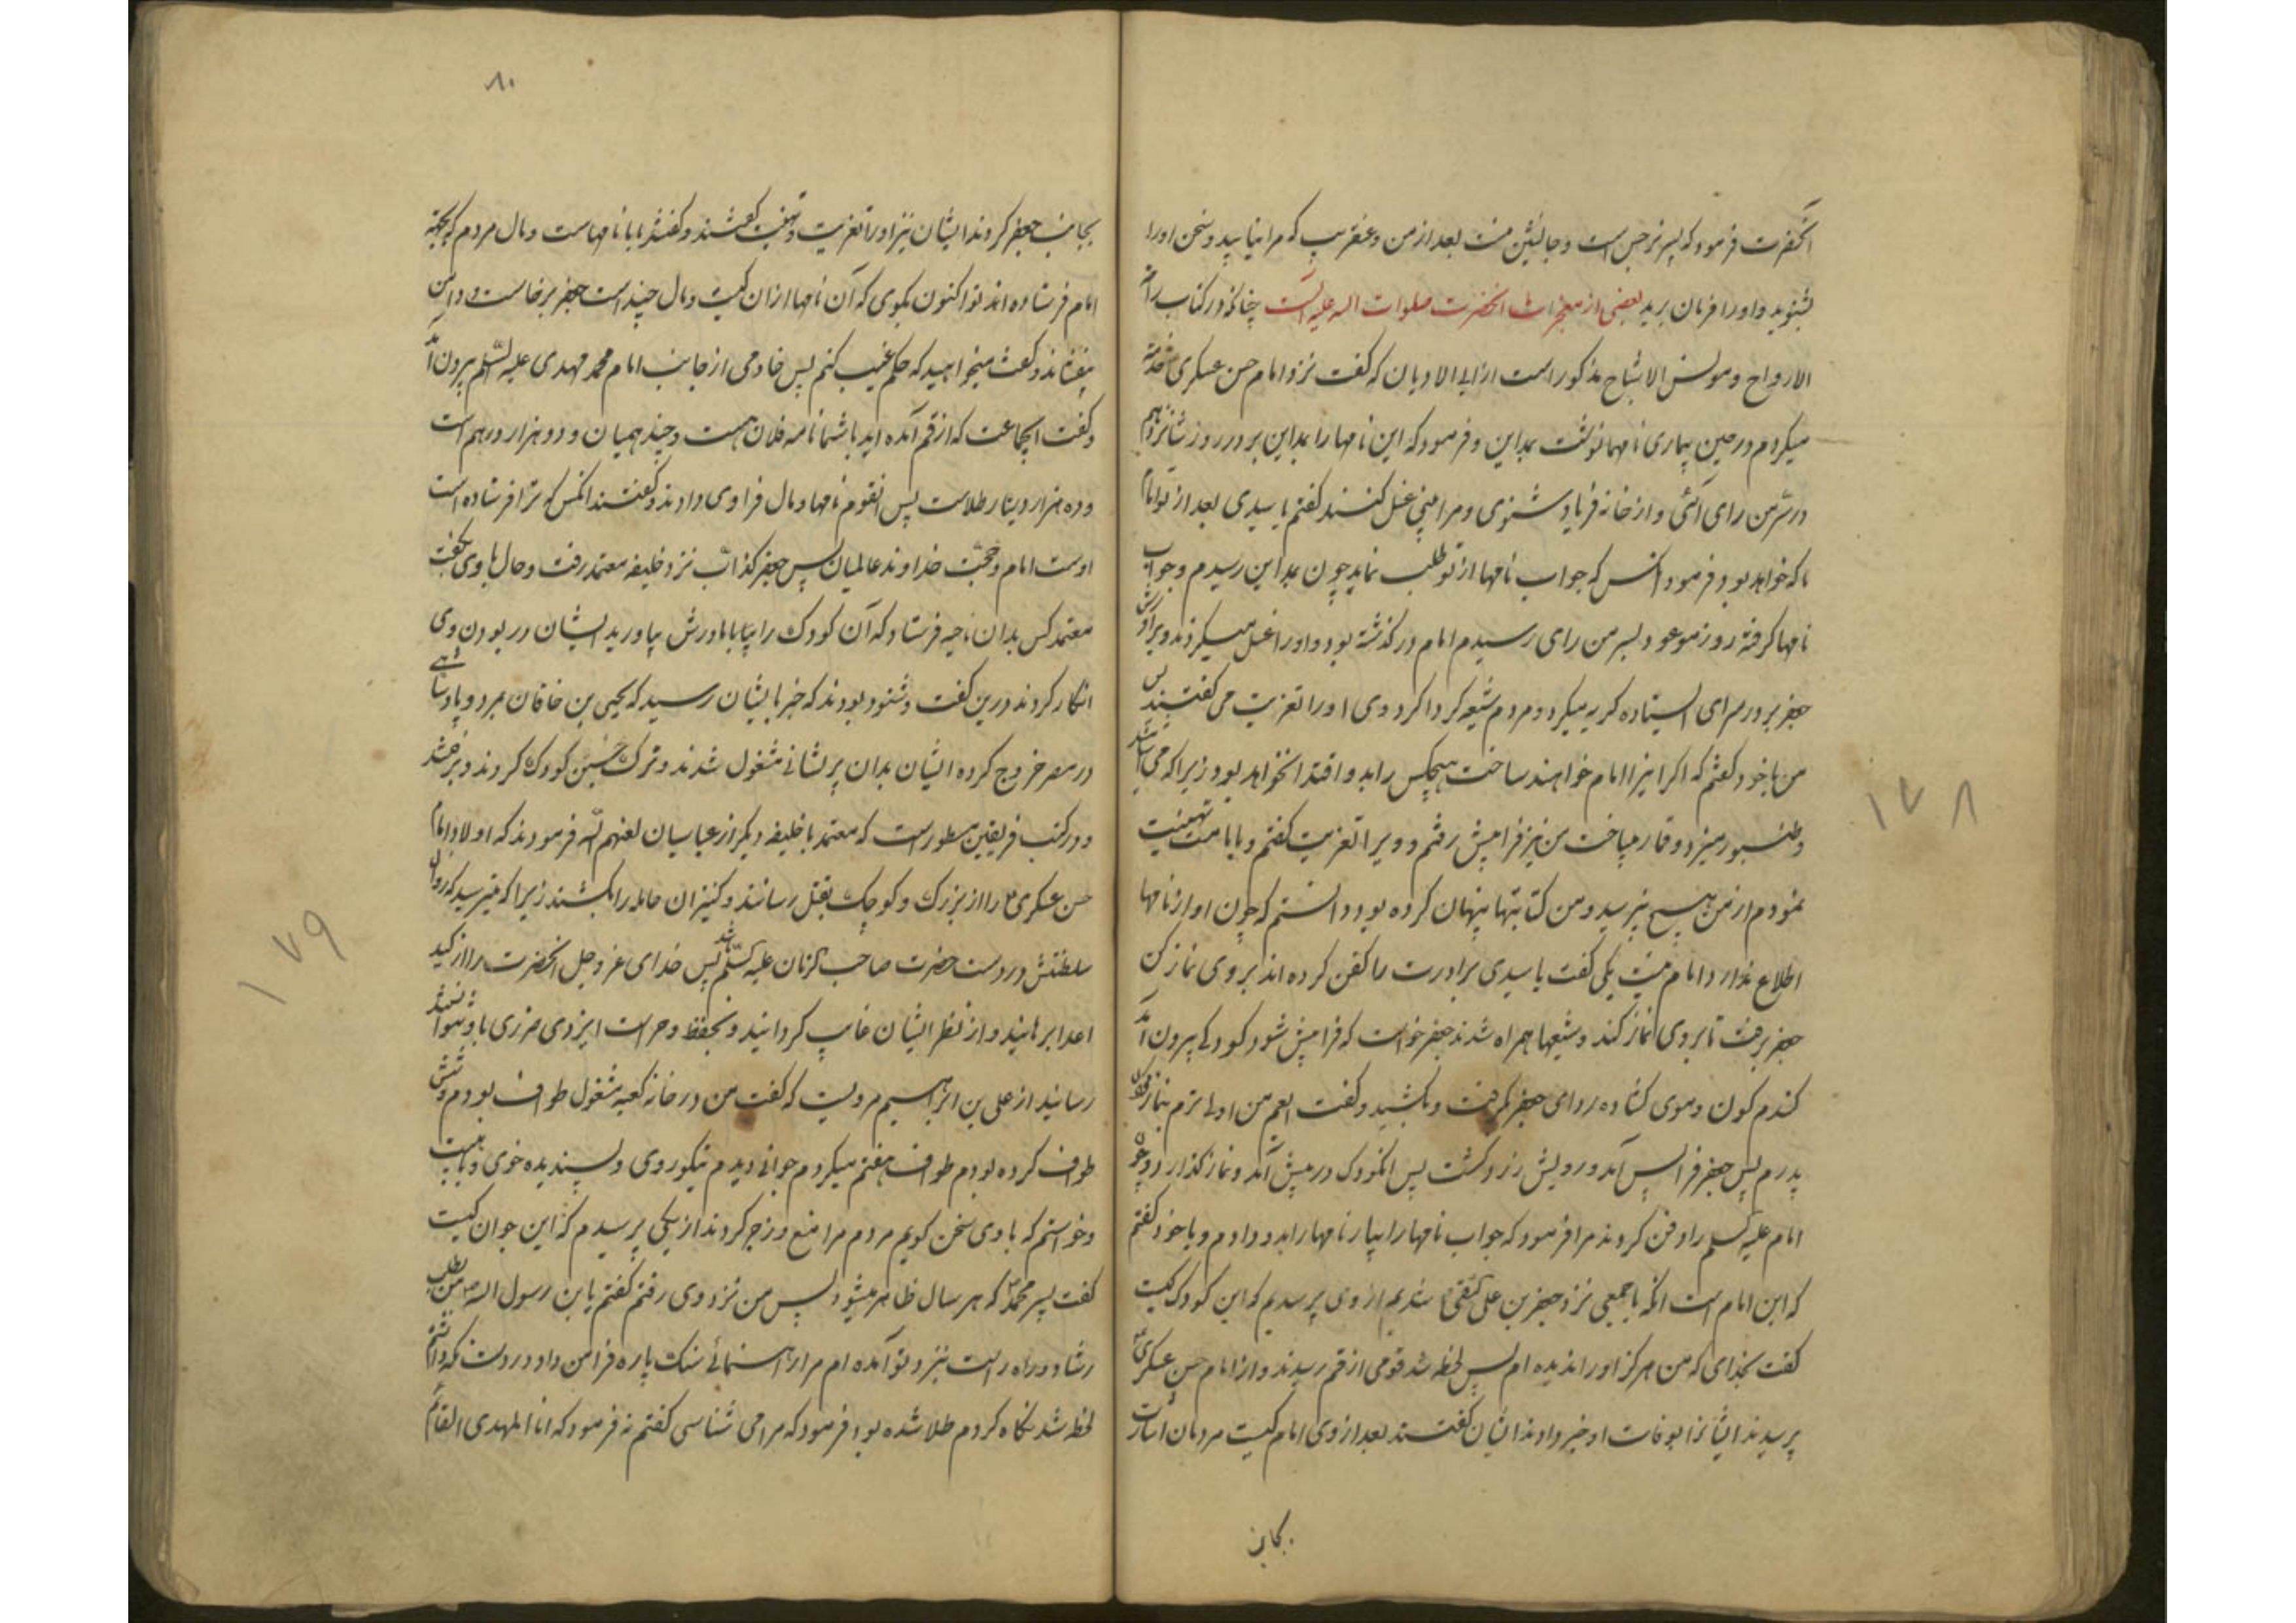 آنحضرت فرمود که پسر نرجس است و جانشین منست بعد از من و عنقریب که مرا نیابید و سخن او را
بشنوید و او را فرمان برید بعضی از معجزات آنحضرت صلوات الله علیه آنست چنانکه در کتاب راحة
الارواح و مونس الاشباح مذکور است از ابی الادیان که گفت نزد امام حسن عسکری خدمت
میکردم در حین بیماری نامها نوشت بمداین و فرمود که این نامها را بمداین بر و در روز شانزدهم
در سر من رای آئی و از خانه فریاد شنوی و مرا بینی غسل کنند گفتم یا سیدی بعد از تو امام
ما که خواهد بود فرمود آنکس که جواب نامها از تو طلب نماید چون بمداین رسیدم و جواب
نامها گرفته روز موعود بسر من رای رسیدم امام درگذشته بود و او را غسل میکردند و برادرش
جعفر بر در سرای ایستاده گریه میکرد و مردم شیعه گرداگرد وی او را تعزیت می گفتند پس
من با خود گفتم که اگر اینرا امام خواهند ساخت هیچکس را بدو اقتدا نخواهد بود زیرا که می
و طنبور میزد و قمار میباخت من نیز فرا پیش رفتم و ویرا تعزیت گفتم و بامامت تهنیت
نمودم از من هیچ نپرسید و من کتابتها پنهان کرده بودم دانستم که چون او از نامها
اطلاع ندارد امام نیست یکی گفت یا سیدی برادرت را کفن کرده اند بر وی نماز کن
جعفر برفت تا بر وی نماز کند و شیعها همراه شدند جعفر خواست که فرا پیش شود کودکی بیرون آمد
گندم گون و موی گشاده ردای جعفر گرفت و بکشید و گفت ای عم من اولی ترم بنماز
پدرم پس جعفر فرا پس آمد و رویش زرد گشت پس آن کودک در پیش آمد و نماز گذارد و چون
امام علیه السلم را دفن کردند مرا فرمود که جواب نامها را بیار نامها را بدو دادم و با خود گفتم
که این امام است آنگه با جمعی نزد جعفر بن علی النقی شدیم از وی پرسیدیم که این کودک کیست
گفت بخدای که من هرگز او را ندیده ام پس لحظه شد قومی از قم رسیدند و از امام حسن عسکری
پرسیدند ایشانرا بوفات او خبر دادند ایشان گفتند بعد از وی امام کیست مردمان اشارت
بجانب
۱۷۸
۸۰
بجانب جعفر کردند ایشان نیز او را تعزیت و تهنیت گفتند و گفتند با ما نامهاست و مال مردم که بجهة
امام فرستاده اند تو اکنون بگوی که آن نامها از آن کیست و مال چند است جعفر برخاست و دامن
بیفشاند و گفت میخواهید که حکم غیب کنم پس خادمی از جانب امام محمد مهدی علیه السلم بیرون آمد
و گفت ای جماعت که از قم آمده اید با شما نامه فلان هست و چند همیان و دو هزار درهم است
و ده هزار دینار طلاست پس آنقوم نامها و مال فرا وی دادند و گفتند آنکس که ترا فرستاده است
اوست امام و حجت خداوند عالمیان پس جعفر کذاب نزد خلیفه معتمد رفت و حال با وی بگفت
معتمد کس بدان ناحیه فرستاد که آن کودک را بیابا مادرش بیاورید ایشان در بودن وی
انکار کردند درین گفت و شنود بودند که خبر بایشان رسید که یحیی بن خاقان بمرد و پادشاهی
در مصر خروج کرده ایشان بدان پریشانی مشغول شدند و ترک جستن کودک کردند و برفتند
و در کتب فریقین مسطور است که معتمد با خلیفه دیگر از عباسیان لعنهم الله فرمودند که اولاد امام
حسن عسکری را از بزرگ و کوچک بقتل رسانند و کنیزان حامله را بکشند زیرا که میترسید که زوال
سلطنتش در دست حضرت صاحب الزمان علیه السلم باشد پس خدای عز و جل آنحضرت را از کید
اعدا برهانید و از نظر ایشان غایب گردانید و بحفظ و حراست ایزدی ضرری باو نتوانستند
رسانید از علی بن ابراهیم مرویست که گفت من در خانه کعبه مشغول طواف بودم و شش
طواف کرده بودم طواف هفتم میکردم جوانی دیدم نیکو روی و پسندیده خوی و با هیبت
و خواستم که با وی سخن گویم مردم مرا منع و زجر کردند از یکی پرسیدم که این جوان کیست
گفت پسر محمد که هر سال ظاهر میشود پس من نزد وی رفتم گفتم یا بن رسول الله من بطلب
رشاد و راه راست نزد تو آمده ام مرا راهنمائی سنک پاره فرا من داد در دست نگه داشتم
لحظه شد نگاه کردم طلا شده بود فرمود که مرا می شناسی گفتم نه فرمود که انا المهدی القائم
۱۷۹